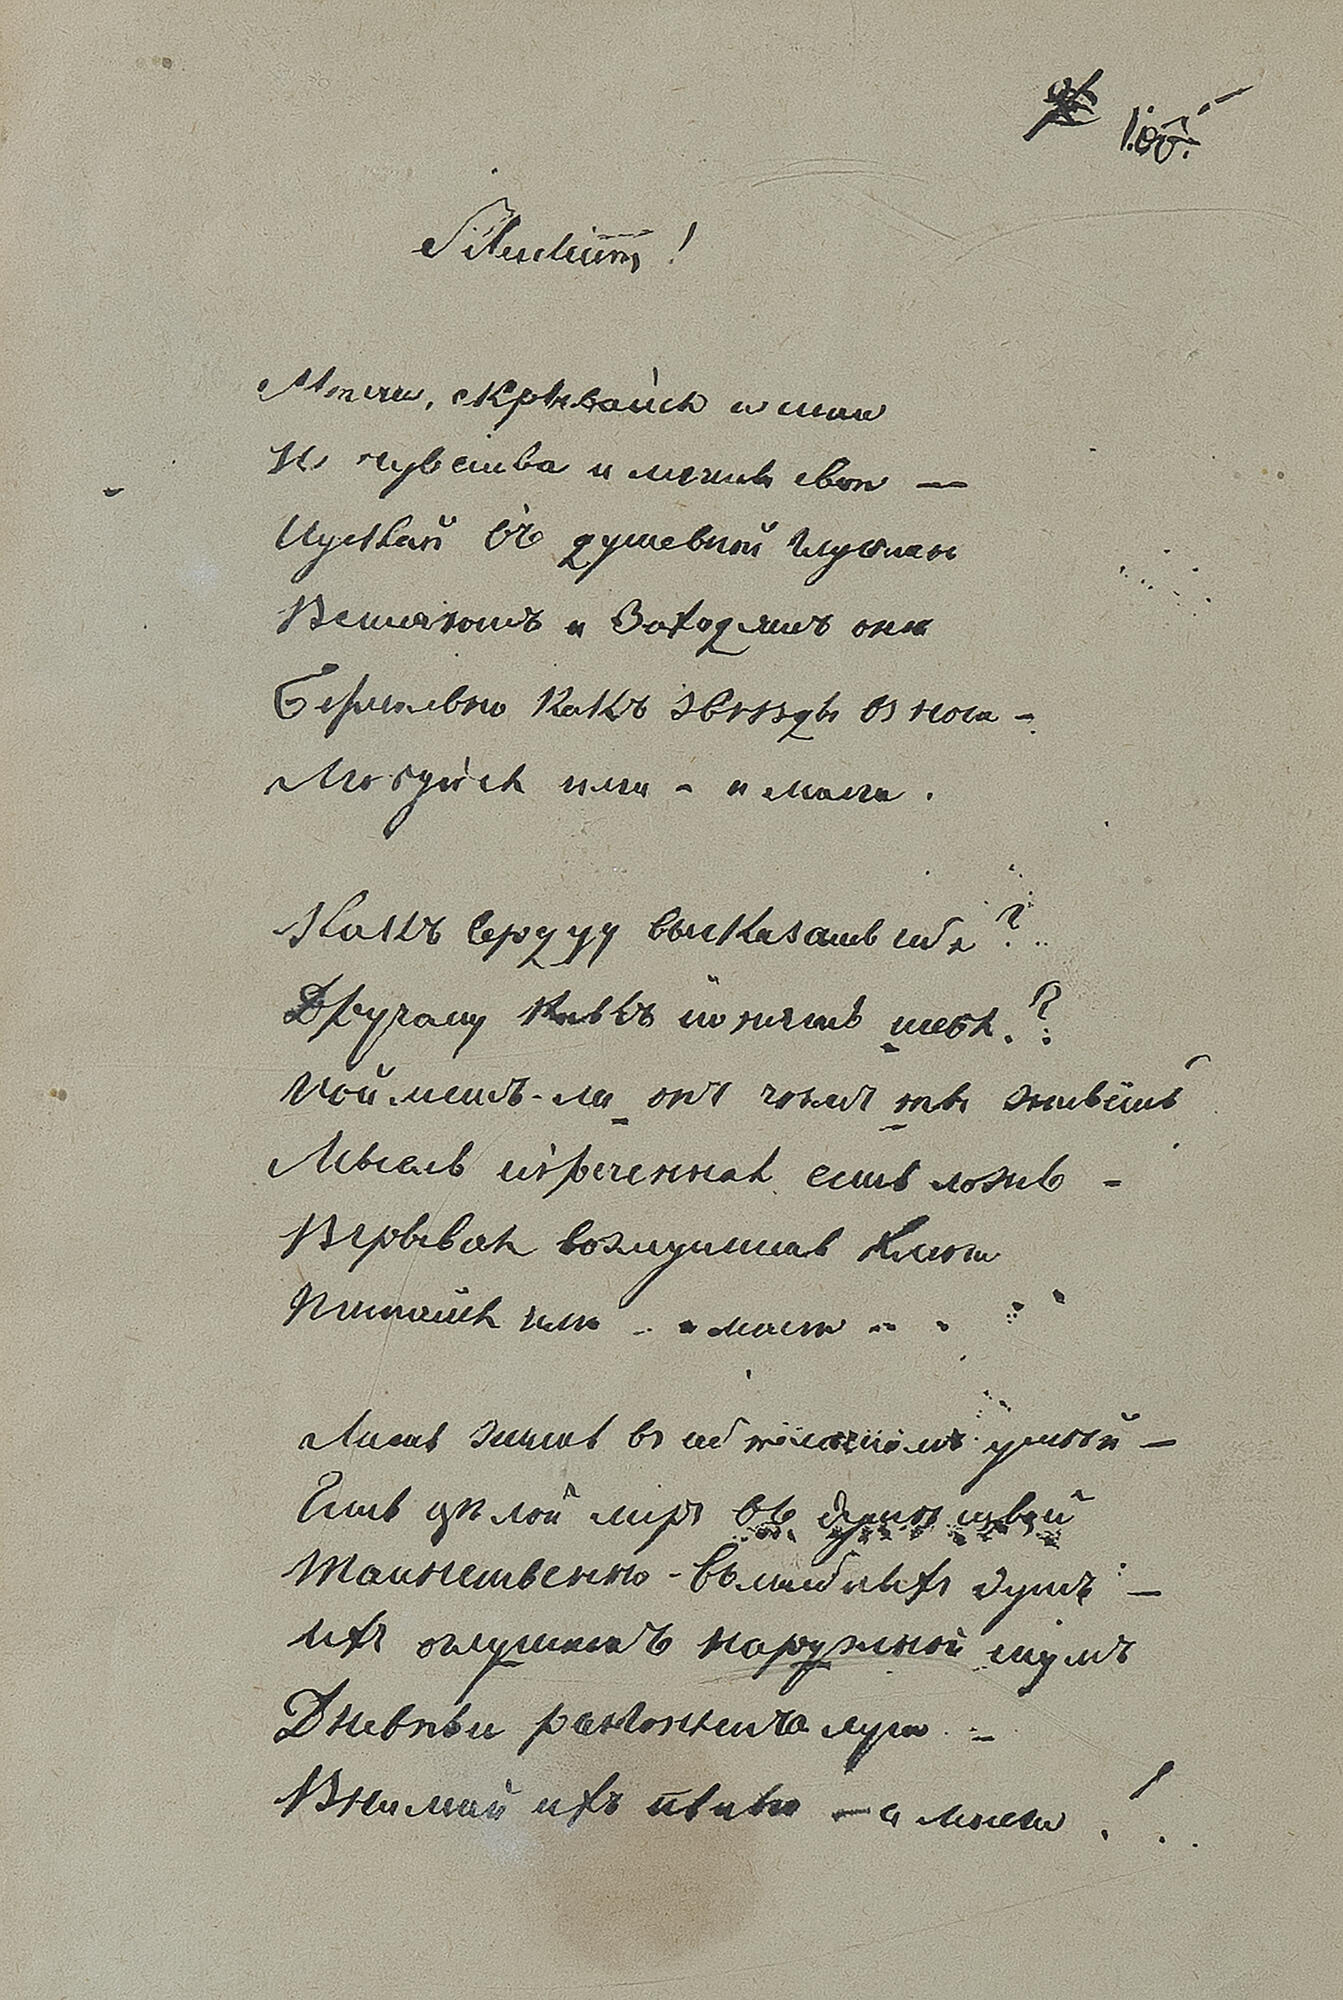 Silentium !
Молчи, скрывайся и таи
И чувства и мечты свои —
Пускай въ душевной глубинѣ
Встаютъ и заходятъ онѣ
Безмолвно какъ звѣзды въ ночи –
Любуйся ими – и молчи .
Какъ сердцу высказать себя ?
Другому какъ понять тебя . ?
Пойметъ-ли онъ чѣмъ ты живёшь
Мысль изреченная есть ложь –
Взрывая возмутишь ключи
Питайся ими – и молчи
Лишь жить въ себѣ самомъ умѣй —
Есть цѣлой міръ въ душѣ твоей
Таинственно - волшебныхъ думъ —
Ихъ оглушитъ наружный шумъ
Дневные разгонятъ лучи –
Внимай ихъ пѣнью — и молчи . !